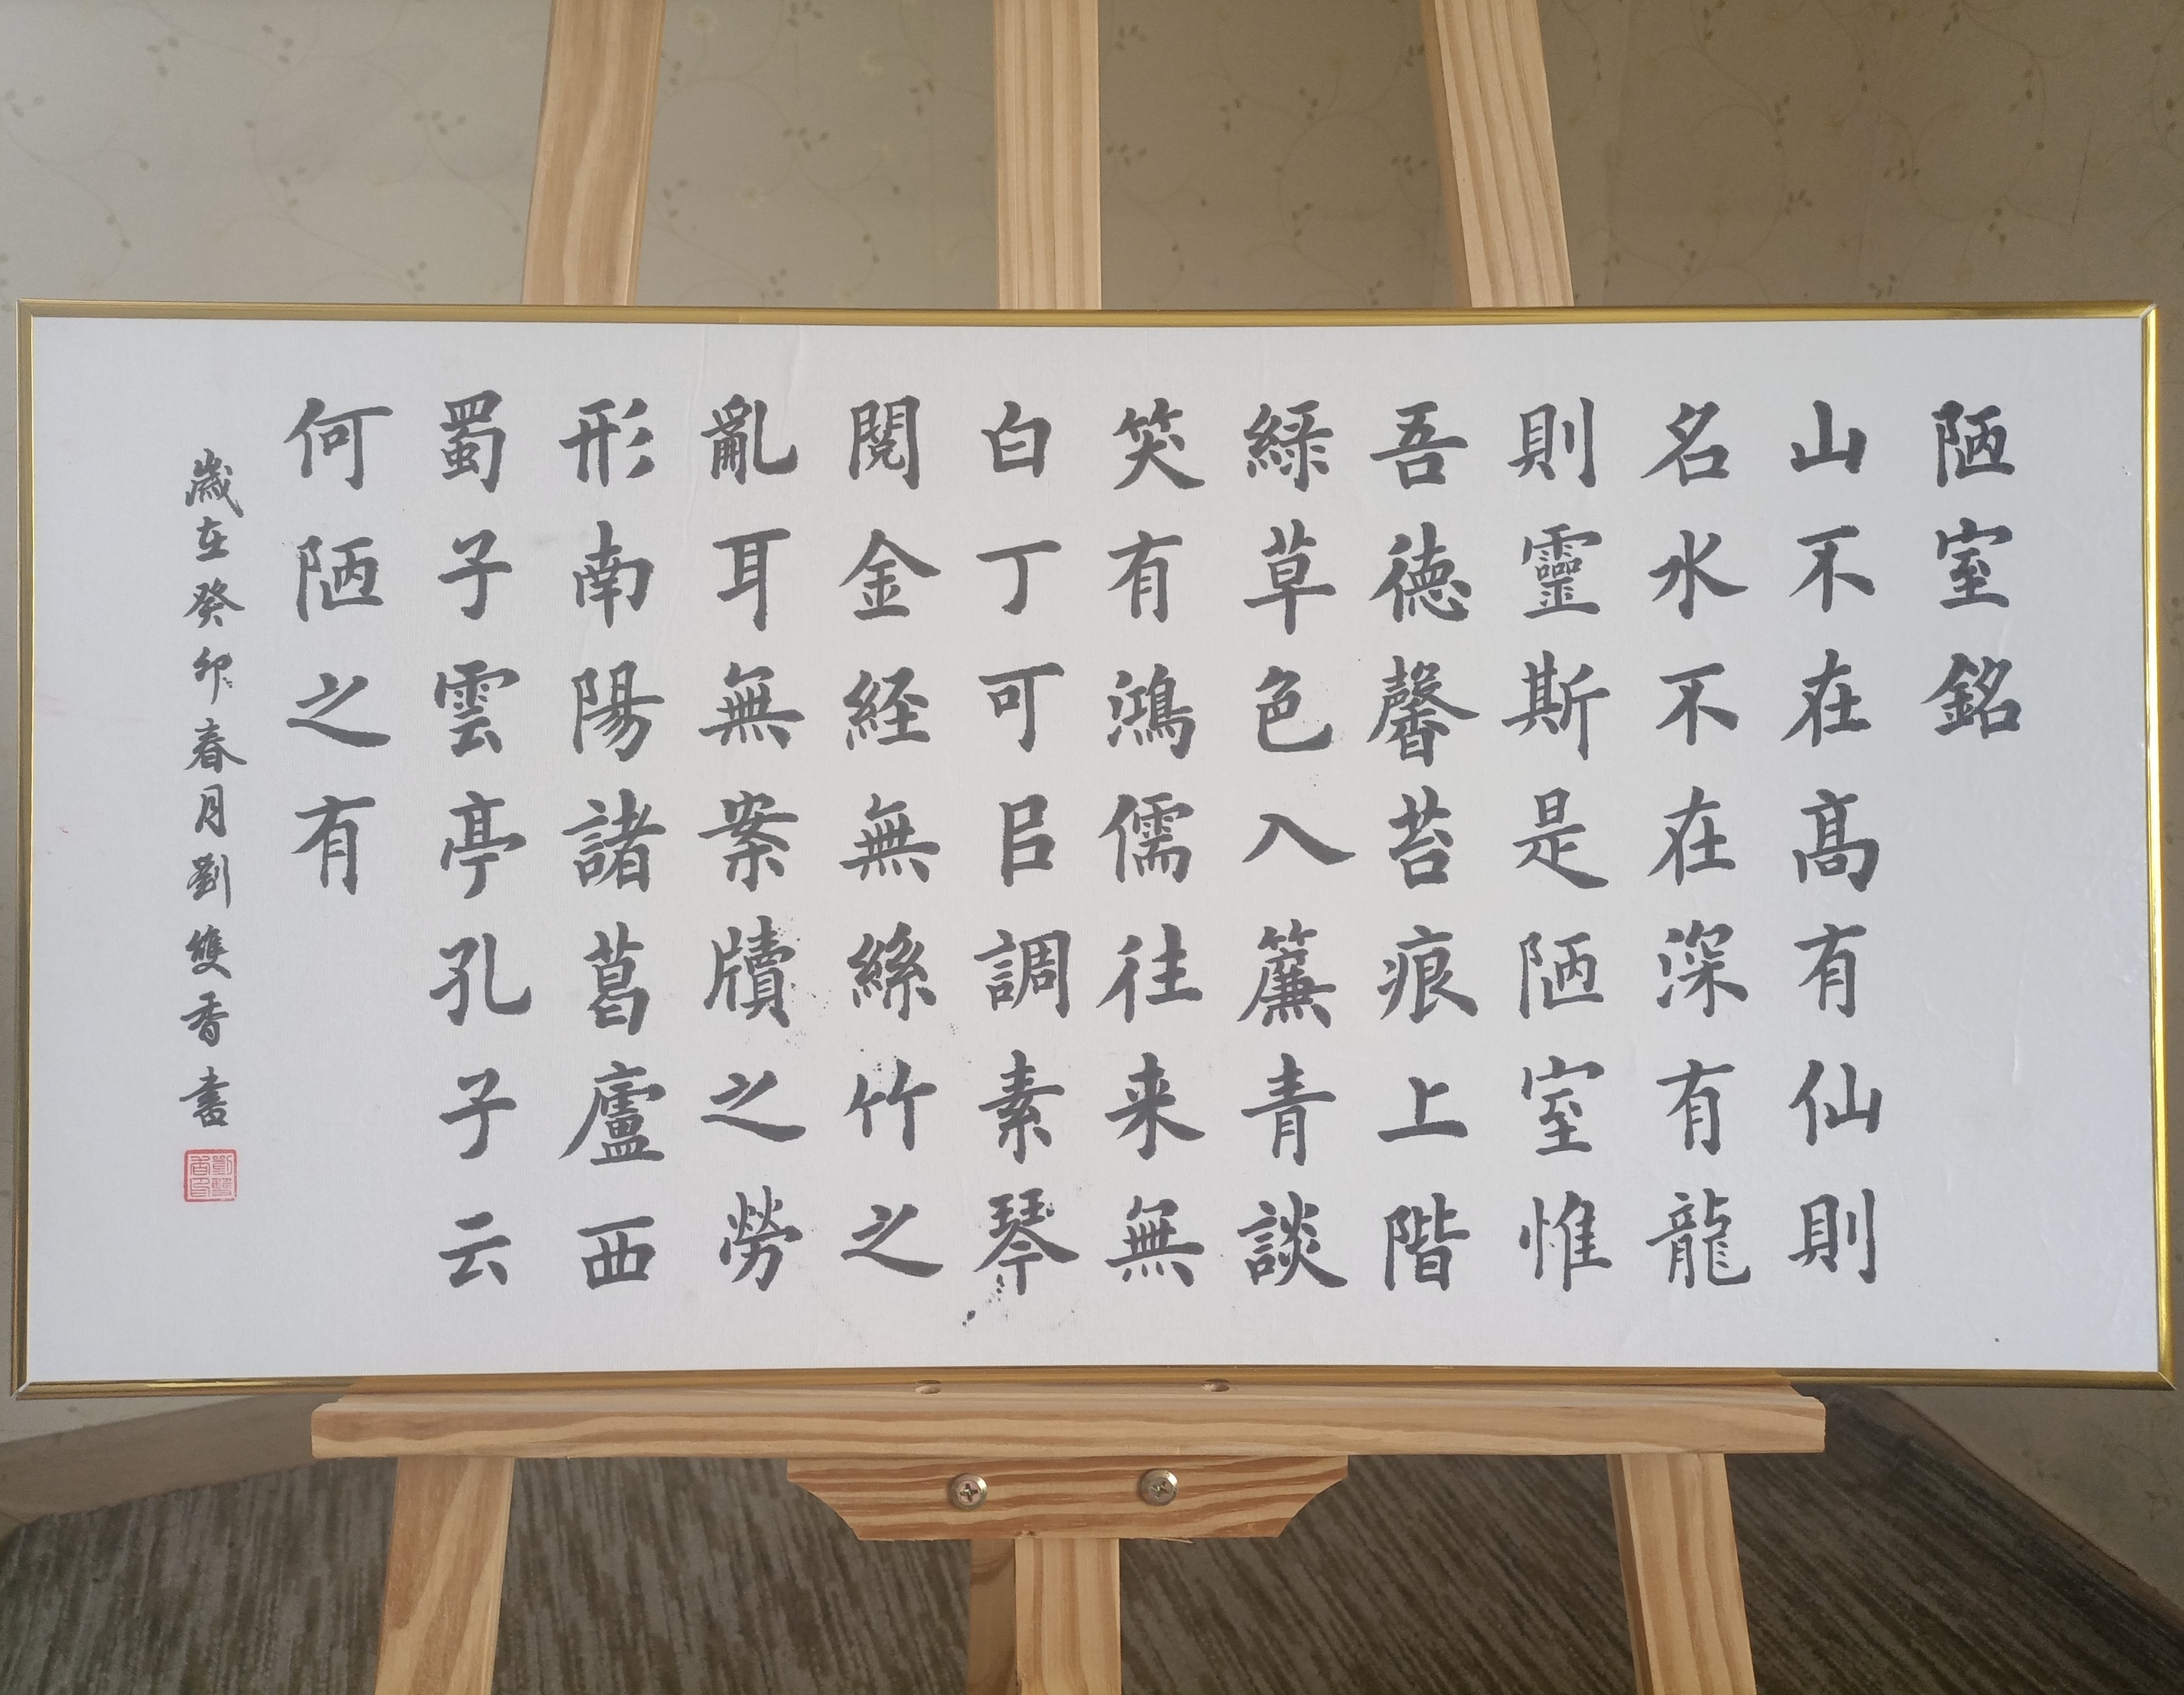 陋室銘
山不在髙有仙則
名水不在深有龍
則靈斯是陋室惟
吾徳馨苔痕上階
綠草色入簾青談
笑有鴻儒往来無
白丁可㠯調素琴
閱金経無絲竹之
亂耳無案牘之勞
形南陽諸葛廬西
蜀子雲亭孔子云
何陋之有
歲在癸卯春月劉雙香書
劉雙香印